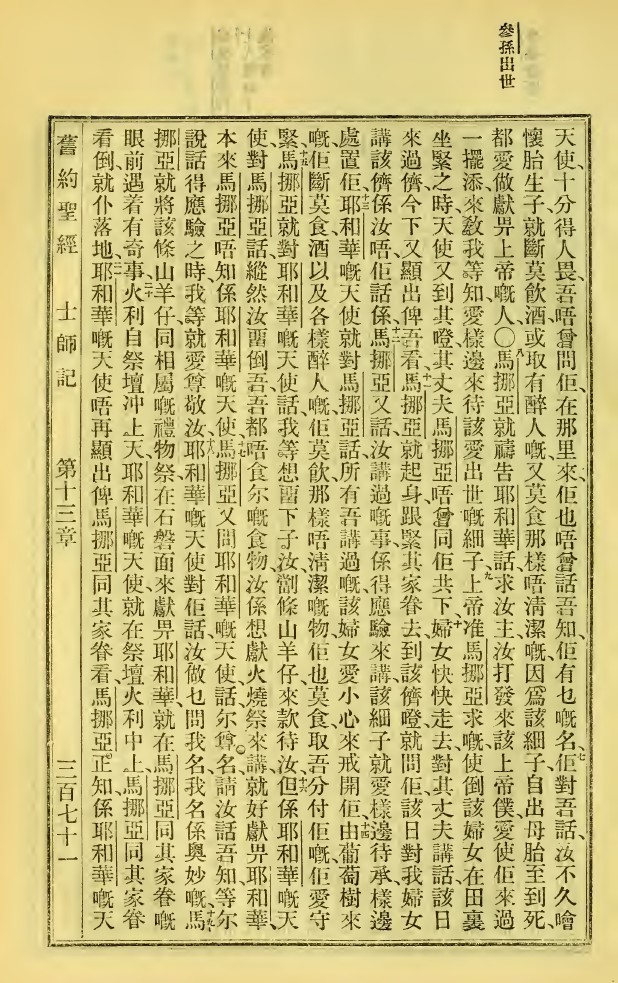 參孫出世
天使、十分得人畏、吾唔曾問佢、在那里來、佢也唔曾話吾知、佢有乜嘅名、七佢對吾話、汝不久噲
懷胎生子、就斷莫飲酒、或取有醉人嘅、又莫食那樣唔淸潔嘅、因爲該細子自出母胎至到死、
都愛做獻畀上帝嘅人、〇八馬挪亞就禱告耶和華話、求汝主、汝打發來該上帝僕、愛使佢來過
一擺、添來敎我等知、愛樣邊來待該愛出世嘅細子、九上帝准馬挪亞求嘅、使倒該婦女在田裏
坐緊之時、天使又到其嶝、其丈夫馬挪亞唔曾同佢共下、十婦女快快走去、對其丈夫講話、該日
來過儕、今下又顯出俾吾看、十一馬挪亞就起身、跟緊其家眷去、到該儕嶝、就問佢、該日對我婦女
講該儕、係汝唔、佢話係、十二馬挪亞又話、汝講過嘅事、係得應驗來講、該細子就愛樣邊待承、樣邊
處置佢、十三耶和華嘅天使就對馬挪亞話、所有吾講過嘅、該婦女愛小心來戒開佢、十四由葡萄樹來
嘅、佢斷莫食、酒以及各樣醉人嘅、佢莫飲、那樣唔淸潔嘅物、佢也莫食、取吾分付佢嘅、佢愛守
緊、十五馬挪亞就對耶和華嘅天使話、我等想留下子汝、劏條山羊仔來款待汝、十六但係耶和華嘅天
使、對馬挪亞話、縱然汝留倒吾、吾都唔食尔嘅食物、汝係想獻火燒祭來講、就好獻畀耶和華、
本來馬挪亞唔知係耶和華嘅天使、十七馬挪亞又問耶和華嘅天使話、尔尊名、請汝話吾知、等尔
說話得應驗之時、我等就愛尊敬汝、十八耶和華嘅天使對佢話、汝做乜問我名、我名係奧妙嘅、十九馬
挪亞就將該條山羊仔、同相屬嘅禮物祭、在石磐面來獻畀耶和華、就在馬挪亞同其家眷嘅
眼前、遇着有奇事、二十火利自祭壇冲上天、耶和華嘅天使、就在祭壇火利中上、馬挪亞同其家眷
看倒、就仆落地、二一耶和華嘅天使唔再顯出俾馬挪亞同其家眷看、馬挪亞正知係耶和華嘅天
舊約聖經　士師記　第十三章　三百七十一